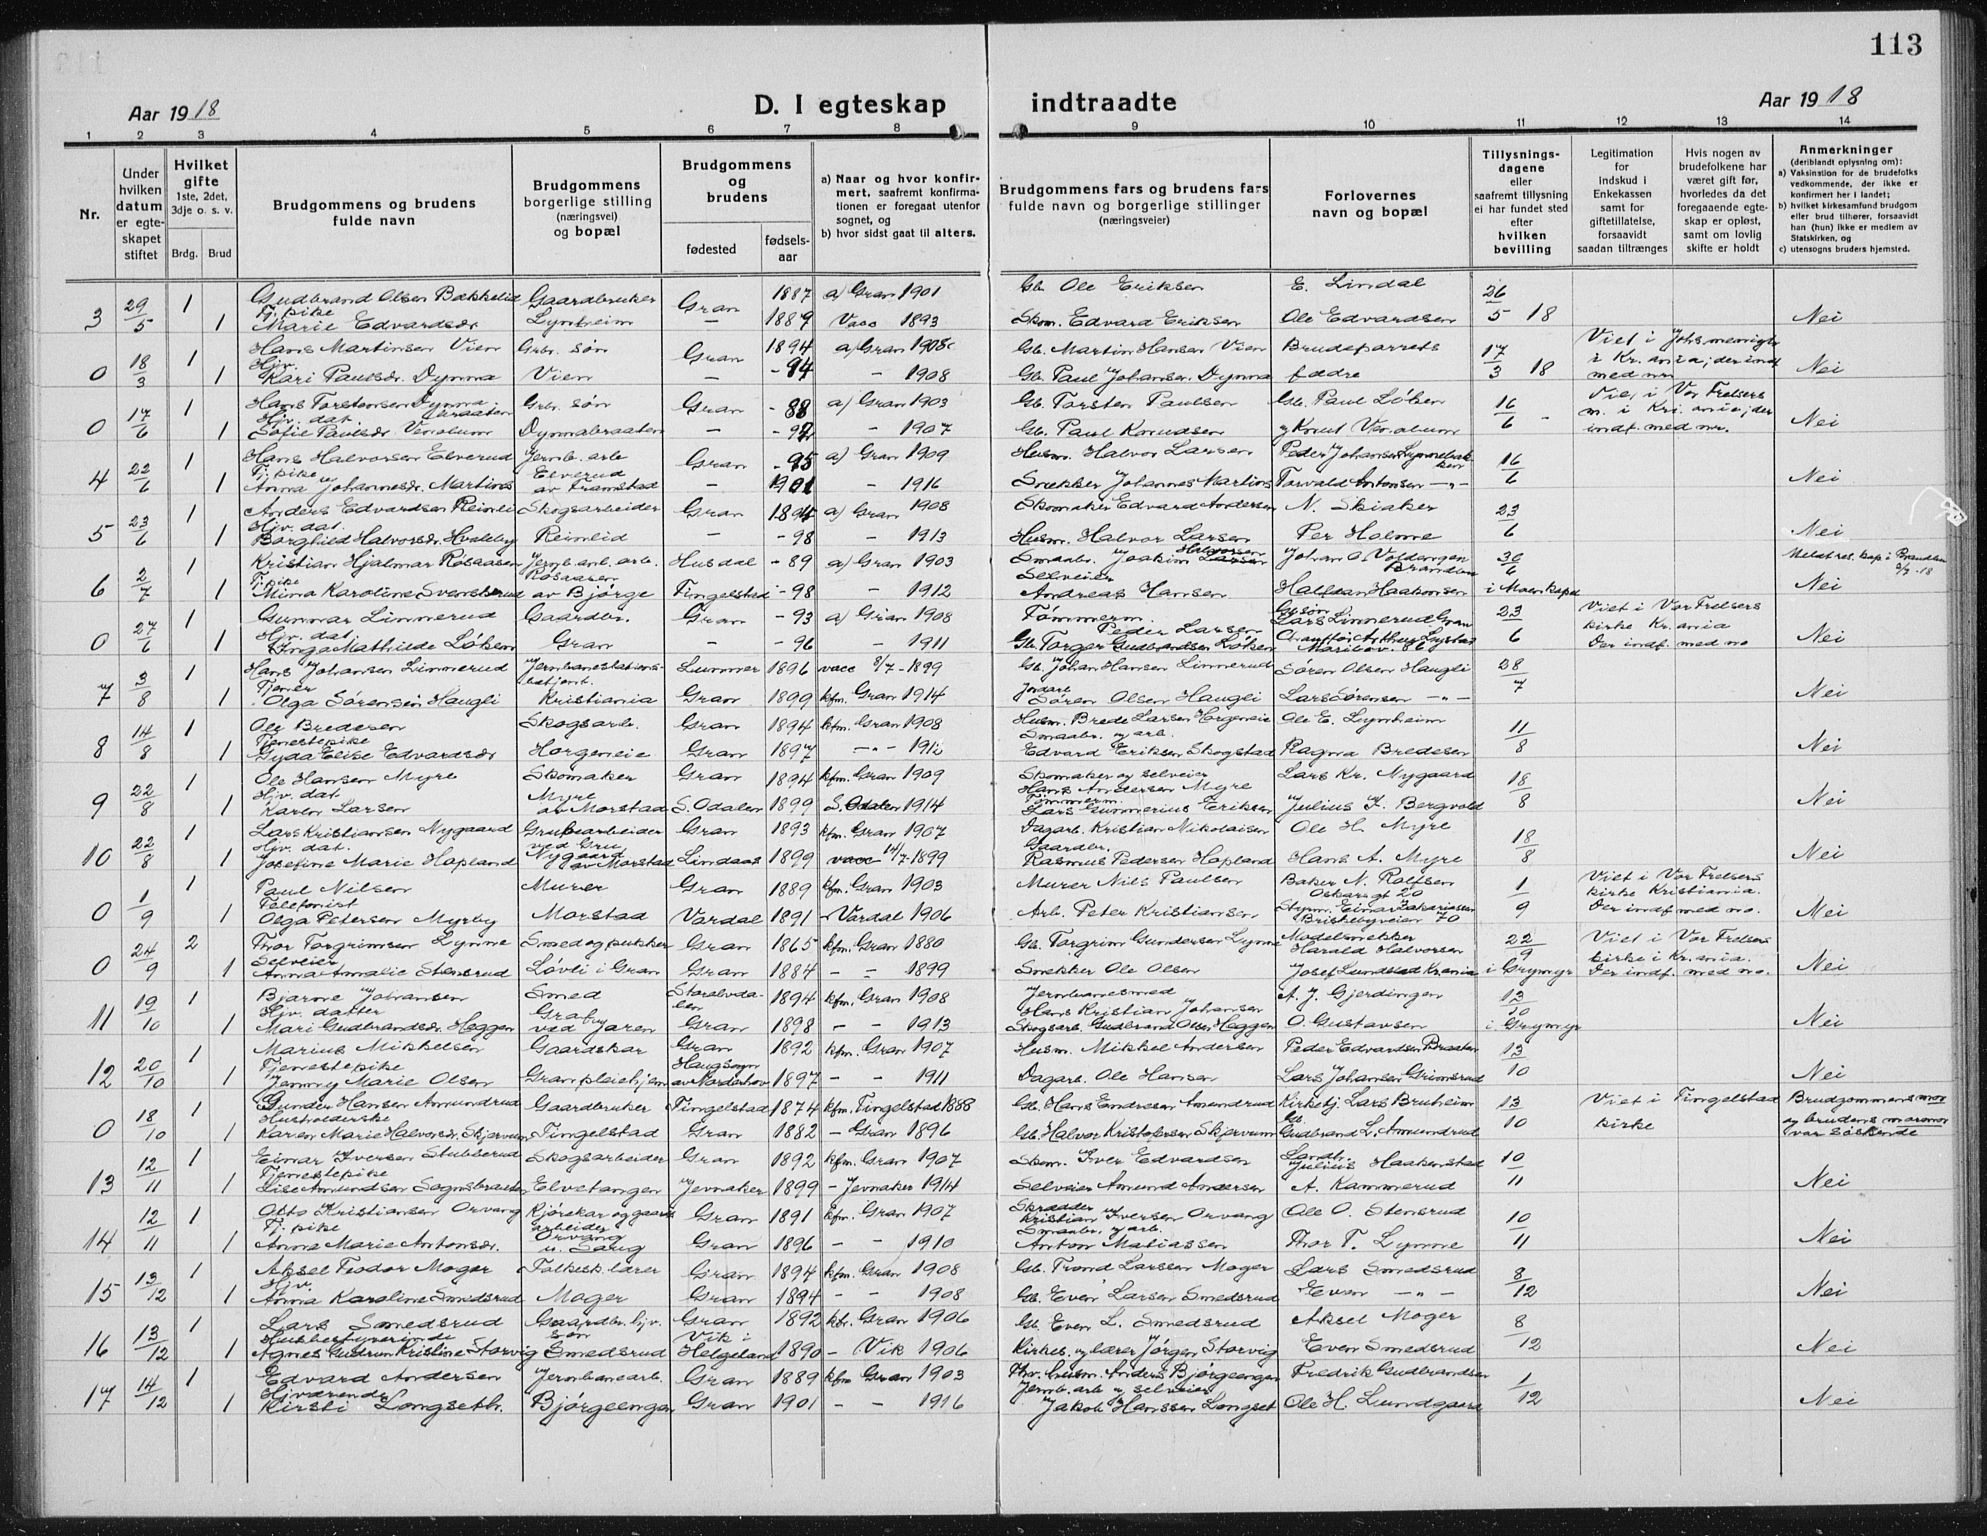 113
Aar 1918
D. I egteskap
indtraadte
Aar 1918
1 2 3 4 5 6 7 8 9 10 11 12 13 14
Nr.
Under hvilken datum er egteskapet stiftet
Hvilket gifte 1ste, 2det, 3dje o. s. v.
Brdg. Brud
Brudgommens og brudens fulde navn
Brudgommens borgerlige stilling (næringsvei) og bopæl
Brudgommens og brudens
fødested
fødselsaar
a) Naar og hvor konfirmert, saafremt konfirmationen er foregaat utenfor sognet, og
b) hvor sidst gaat til alters.
Brudgommens fars og brudens fars fulde navn og borgerlige stillinger (næringsveier)
Forlovernes navn og bopæl
Tillysningsdagene eller saafremt tillysning ei har fundet sted efter hvilken bevilling
Legitimation for indskud i Enkekassen samt for giftetillatelse, forsaavidt saadan tiltrænges
Hvis nogen av brudefolkene har været gift før, hvorledes da det foregaaende egteskap er opløst, samt om lovlig skifte er holdt
Anmerkninger (deriblandt oplysning om):
a) Vaksination for de brudefolks vedkommende, der ikke er konfirmert her i landet;
b) hvilket kirkesamfund brudgom eller brud tilhører, forsaavidt han (hun) ikke er medlem av Statskirken, og
c) utensogns bruders hjemsted.
3 29/5 1 Gudbrand Olsen Bækkelid Gaardbruker Gran 1887 a) Gran 1901 Gb. Ole Eriksen E. Lindal 26/5 18
Tj. pike
1 Marie Edvardsdr. Lynheim — 1889 Vacc 1893 Skom. Edvard Eriksen Ole Edvardsen Nei
0 18/3 1 Hans Martinsen Vien Grbr. søn Gran 1894 a) Gran 1908 Gb. Martin Hansen Vien Brudeparrets 17/3 18 Viet i
Hjv.
1 Kari Paulsdr. Dynna Vien — -94 — 1908 Gb. Paul Johansen Dynna fædre med nr. Nei
0 17/6 1 Hans Torstensen Dynna braaten Grbr. søn Gran -88 a) Gran 1903 Gb. Torsten Paulsen Gb. Paul Løken 16/6 - Viet i Vor Frelsers
Hjv. dat.
1 Sofie Paulsdr. Dynnabraaten — — 1907 Gb. Paul Knudsen Knut indf. med nr. Nei
4 22/6 1 Hans Halvorsen Elverud Jernb. arb. Gran -95 a) Gran 1909 Husm. Halvor Larsen Peder Johansen 16/6
Tj. pike Elverud
1 Anna Johannesdr. Martins av Framstad — 1901 — 1916 Snekker Johannes Martins Torvald Antonsen -"- Nei
5 23/6 1 Anders Edvardsen Reinli Skogsarbeider Gran 1895 a) Gran 1908 Skomaker Edvard Andersen N. Skiaker 23/6
Hjv. dat.
1 Borghild Halvorsdr. Hvaleby Reinlid — -98 — 1913 Husm. Halvor Larsen Per Holme Nei
6 2/7 1 Kristian Hjalmar Rosaasen Jernb. anl. arb. Husdal -89 a) Gran 1903 Smaabr. Joakim Halvorsen Johan O. Voldengen Brandbu 30/6
Tj. pike Rosaasen Selveier
1 Mina Karoline Svenserud av Bjørge Tingelstad -98 — 1912 Andreas Hansen Halfdan Haakonsen i Moen kapel Nei
0 27/6 1 Gunnar Linnerud Gaardbr. Gran -93 a) Gran 1908 Tømmerm. Peder Larsen Lars Linnerud Gran 23/6 Viet i Vor Frelsers
Hjv. dat. kirke Kr. ania
1 Inga Mathilde Løken Gran — -96 — 1911 Gb. Torger Gudbrandsen Løken Chauffør Arthur Lystad Maribov. 86 Der indf. med no Nei
7 3/8 1 Hans Johansen Linnerud Jernbanestationsbetjent. Lunner 1896 vacc 8/7-1899 Gb. Johan Hansen Linnerud Søren Olsen Haugli 28/7
Tjener
1 Olga Sørensen Haugli Kristiania Gran 1899 kfm. Gran 1914 Søren Olsen Haugli Lars Sørensen -"- Nei
8 14/8 1 Ole Bredesen Skogsarb. Gran 1894 kfm. Gran 1908 Husm. Brede Larsen Horgeneie Ole E. Lynheim 11/8
Tjenestepike Smaabr. og arb.
1 Gyda Elise Edvardsdr. Horgeneie Gran 1897 -"- 1912 Edvard Eriksen Skogstad Ragna Bredesen Nei
9 22/8 1 Ole Hansen Myre Skomaker Gran 1894 kfm. Gran 1909 Skomaker og selveier Hans Andersen Myre Lars Kr. Nygaard 18/8
Hjv. dat. Myre Tømmerm.
1 Karen Larsen av Morstad S. Odalen 1899 S. Odalen 1914 Lars Gunnerius Eriksen Julius J. Bergvold Nei
10 22/8 1 Lars Kristiansen Nygaard Grubearbeider ved Grua Gran 1893 kfm. Gran 1907 Dagarb. Kristian Nikolaisen Ole H. Myre 18/8
Hjv. dat. Nygaard Gaarder.
1 Josefine Marie Hopland av Morstad Lindaas 1899 vacc 14/7-1899 Rasmus Pedersen Hopland Hans A. Myre Nei
0 1/9 1 Paul Nilsen Murer Gran 1889 kfm. Gran 1903 Murer Nils Paulsen Baker N. Rolfsen Oskarsgt 20 1/9 Viet i Vor Frelsers
Telefonist kirke Kristiania.
1 Olga Petersen Myrby Morstad Vardal 1891 - Vardal 1906 Arb. Peter Kristiansen Styrm. Einar Zakariassen Briskebyveien 70 Der indf. med no. Nei
0 24/9 2 Thor Torgrimsen Lynne Smed og pukker Gran 1865 kfm. Gran 1880 Gb. Torgrim Gundersen Lynne Modelsnekker Harald Halvorsen 22/9 Viet i Vor Frelsers
Selveier kirke i Kr. ania.
1 Anna Amalie Stensrud Løvli i Gran Gran 1884 — — 1899 Snekker Ole Olsen Josef Lundstad Kr.ania i Grymyr Der indf. med no. Nei
11 19/10 1 Bjarne Johansen Smed 1894 kfm. Gran 1908 Jernbanesmed Hans Kristian Johansen A. J. Gjerdingen 13/10
Hjv. datter
1 Mari Gudbrandsdr. Heggen ved Jaren Gran 1898 — — 1913 Skogsarb. Gudbrand Olsen Heggen O. Gustavsen i Grymyr Nei
12 20/10 1 Marius Mikkelsen Gaardskar Gran 1892 kfm. Gran 1907 Husm. Mikkel Andersen Peder Edvardsen Braaten 13/10
Tjenestepike Haugsogn
1 Jenny Marie Olsen Gran pleiehjem av Norderhov 1897 — — 1911 Dagarb. Ole Hansen Lars Johansen Grimsrud Nei
0 18/10 1 Gunder Hansen Amundrud Gaardbruker Tingelstad 1874 kfm. Tingelstad 1888 Gb. Hans Endresen Amundrud Kirketj. Lars Bruheim 13/10 Viet i Tingelstad kirke Brudgommens mor
Husholderske og brudens mormor
1 Karen Marie Halvorsdr. Skjervum Tingelstad Gran 1882 - Gran 1896 Gb. Halvor Kristofersen Skjervum Gb. Gudbrand L. Amundrud var søskende
13 12/11 1 Einar Iversen Stubberud Skogsarbeider Gran 1892 kfm. Gran 1907 Skom. Iver Edvardsen Landh. Julius Haakenstad 10/11
Tjenestepike
1 Lise Amundsen Sognsbraaten Elvetangen Jevnaker 1899 - Jevnaker 1914 Selveier Amund Andersen A. Kammerud Nei
14 12/11 1 Otto Kristiansen Orvang Kjørekar og gaardsarbeider Gran 1891 kfm. Gran 1907 Skrædder Kristian Iversen Orvang Ole O. Stensrud 10/11
Tj. pike Orvang Smaabr. og arb.
1 Anna Marie Antonsdr. u. Saug Gran 1896 — — 1910 Anton Matiassen Thor T. Lynne Nei
15 13/12 1 Aksel Teodor Moger Folkesk.lærer Gran 1894 kfm. Gran 1908 Gb. Trond Larssen Moger Lars Smedsrud 8/12
Hjv.
1 Anna Karoline Smedsrud Moger Gran 1894 — — 1908 Gb. Even Larsen Smedsrud Even -"- Nei
16 13/12 1 Lars Smedsrud Gaardbr. hjv. søn Gran 1892 kfr. Gran 1906 Gb. Even L. Smedsrud Aksel Moger 8/12
Husbestyrerinde Vik i
1 Agnes Gudrun Kristine Storvig Smedsrud Helgeland 1890 - Vik 1906 Kirkes. og lærer Jørgen Storvig Even Smedsrud Nei
17 14/12 1 Edvard Andersen Jernbanearb. Gran 1889 kfm Gran 1903 Fhv. husm. Anders Bjørgeengen Fredrik Gudbrandsen 1/12
Hjværende Jernb. arb og selveier
1 Kirsti Longseth. Bjørgeengen Gran 1901 — — 1916 Jakob Hanssen Longset Ole H. Lundgaard Nei